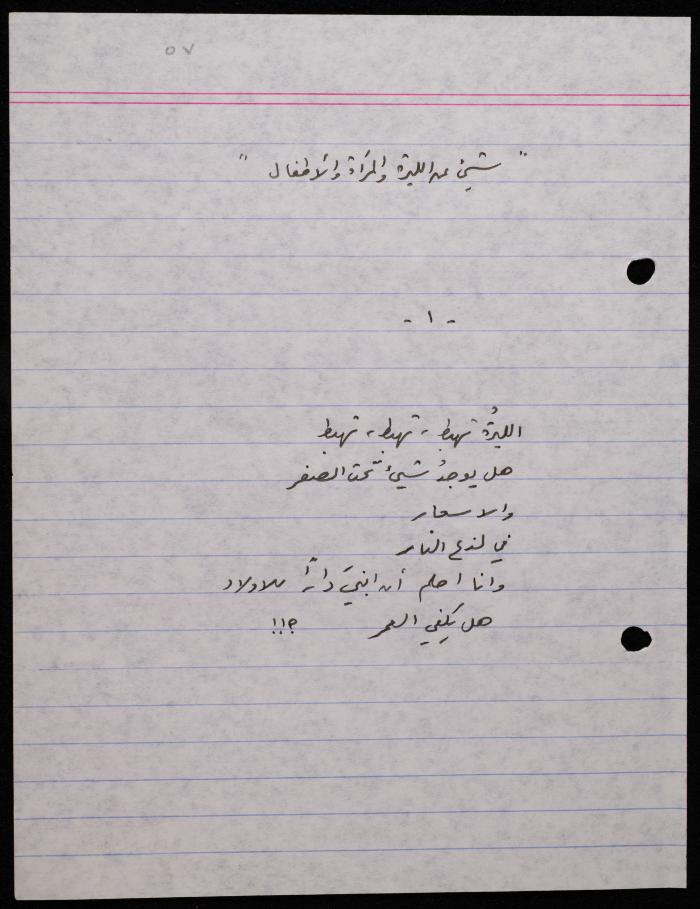 ٥٧
" شيئ عن الليرة والمرأة والأطفال "
- ١ -
الليرةُ تهبط، تهبط، تهبط
هل يوجدُ شيئٌ تحت الصفر
والاسعار
في لذع النار
وانا احلم أن ابنيَ داراً للاولاد
هل يكفي العمر ؟!!